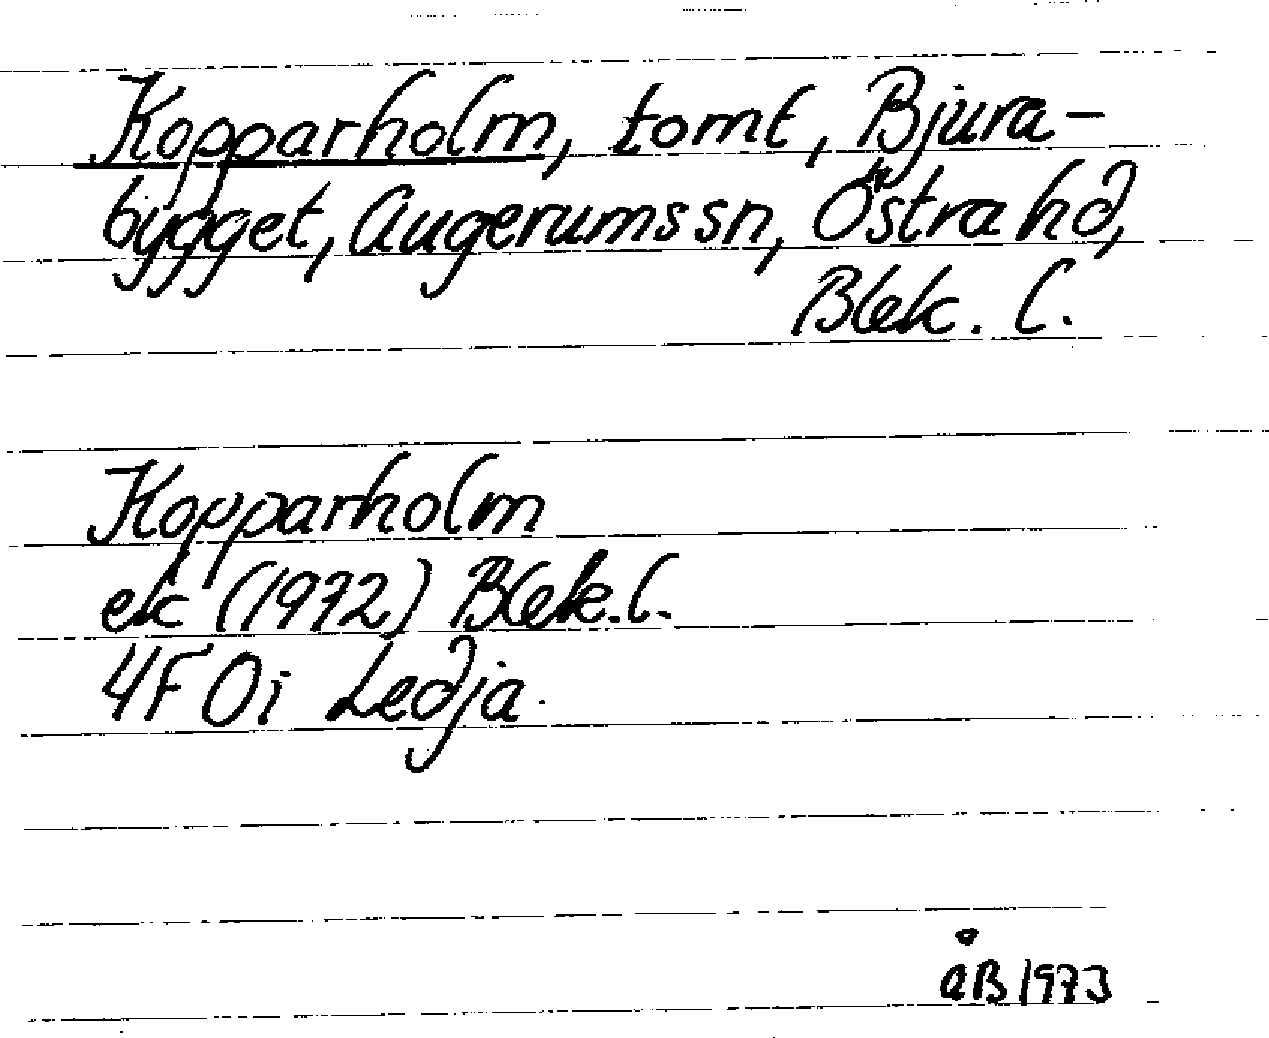 Kopparholm, tomt, Bjura-
bygget, Augerums sn, Östra hd,
Blek. l.
Kopparholm
ek (1972) Blek. l.
4F 0i Ledja.
ÅB 1973